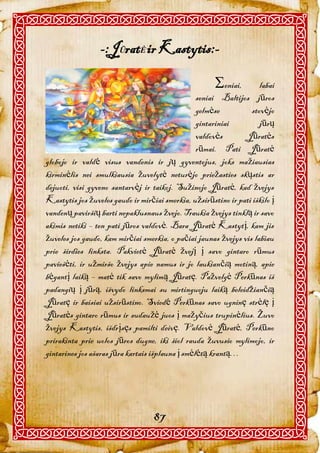 -: Jūratė ir Kastytis:-
Seniai, labai
seniai Baltijos jūros
gelmėse stovėjo
gintariniai jūrų
valdovės Jūratės
rūmai. Pati Jūratė
globojo ir valdė visus vandenis ir jų gyventojus, joks mažiausias
kirminėlis nei smulkiausia žuvelytė neturėjo priežasties skųstis ar
dejuoti, visi gyveno santarvėj ir taikoj. Sužinojo Jūratė, kad žvejys
Kastytis jos žuveles gaudo ir mirčiai smerkia, užsirūstino ir pati iškilo į
vandenų paviršių barti nepaklusnaus žvejo. Traukia žvejys tinklą ir savo
akimis netiki - ten pati jūros valdovė. Bara Jūratė Kastytį, kam jis
žuveles jos gaudo, kam mirčiai smerkia, o pačiai jaunas žvejys vis labiau
prie širdies linksta. Pakvietė Jūratė žvejį į savo gintaro rūmus
paviešėti, ir užmiršo žvejys apie namus ir jo laukiančią motiną, apie
bėgantį laiką - matė tik savo mylimą Jūratę. Pažvelgė Perkūnas iš
padangių į jūrą, išvydo linksmai su mirtinguoju laiką beleidžiančią
Jūratę ir baisiai užsirūstino. Sviedė Perkūnas savo ugninę strėlę į
Jūratės gintaro rūmus ir sudaužė juos į mažyčius trupinėlius. Žuvo
žvejys Kastytis, išdrįsęs pamilti deivę. Valdovė Jūratė, Perkūno
prirakinta prie uolos jūros dugne, iki šiol rauda žuvusio mylimojo, ir
gintarines jos ašaras jūra kartais išplauna į smėlėtą krantą...
87